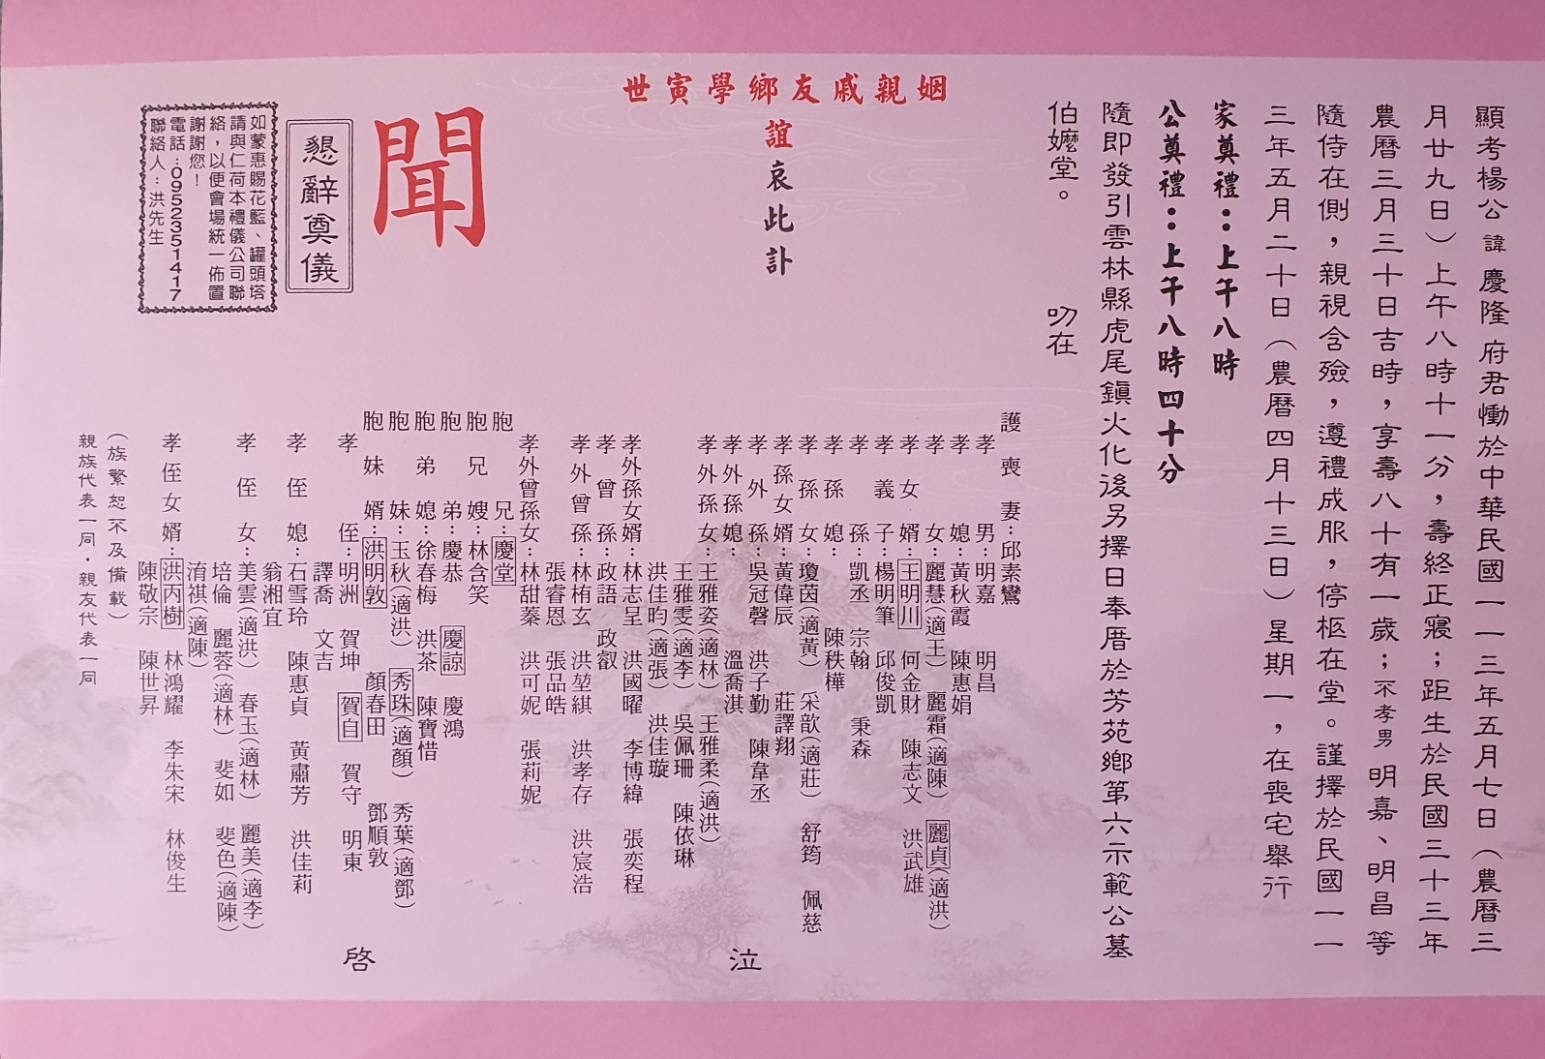 顯考楊公諱慶隆府君慟於中華民國一一三年五月七日（農曆三
月廿九日）上午八時十一分，壽終正寢；距生於民國三十三年
農曆三月三十日吉時，享壽八十有一歲；不孝男明嘉、明昌等
隨侍在側，親視含殮，遵禮成服，停柩在堂。謹擇於民國一一
三年五月二十日（農曆四月十三日）星期一，在喪宅舉行
家奠禮：上午八時
公奠禮：上午八時四十分
隨即發引雲林縣虎尾鎮火化後另擇日奉厝於芳苑鄉第六示範公墓
伯嬤堂。　叨在
姻親戚友鄉學寅世
誼哀此訃
聞
護喪妻：邱素鸞
孝男：明嘉　明昌
孝媳：黃秋霞　陳惠娟
孝女：麗慧（適王）　麗霜（適陳）　麗貞（適洪）
孝女婿：王明川　何金財　陳志文　洪武雄
孝義子：楊明筆　邱俊凱
孝孫：凱丞　宗翰　秉森
孝孫媳：陳秩樺
孝孫女：瓊茵（適黃）　采歆（適莊）　舒筠　佩慈
孝孫女婿：黃偉辰　莊譯翔
孝外孫：吳冠磬　洪子勤　陳韋丞
孝外孫媳：溫喬淇
孝外孫女：王雅姿（適林）　王雅柔（適洪）
王雅雯（適李）　吳佩珊　陳依琳
洪佳昀（適張）　洪佳璇
孝外孫女婿：林志呈　洪國曜　李博緯　張奕程
孝曾孫：政語　政叡
孝外曾孫：林栯玄　洪堃縯　洪孝存　洪宸浩
張睿恩　張品皓
孝外曾孫女：林甜蓁　洪可妮　張莉妮
胞兄：慶堂
胞兄嫂：林含笑
胞弟：慶恭　慶諒　慶鴻
胞弟媳：徐春梅　洪茶　陳寶惜
胞妹：玉秋（適洪）　秀珠（適顏）　秀葉（適鄧）
胞妹婿：洪明敦　顏春田　鄧順敦
孝侄：明洲　賀坤　賀自　賀守　明東
譯喬　文吉
孝侄媳：石雪玲　陳惠貞　黃肅芳　洪佳莉
翁湘宜
孝侄女：美雲（適洪）　春玉（適林）　麗美（適李）
培倫　麗蓉（適林）　斐如　斐色（適陳）
淯祺（適陳）
孝侄女婿：洪丙樹　林鴻耀　李朱宋　林俊生
陳敬宗　陳世昇
（族繁恕不及備載）
親族代表一同．親友代表一同
泣
啓
懇辭奠儀
如蒙惠賜花籃、罐頭塔
請與仁荷本禮儀公司聯
絡，以便會場統一佈置
謝謝您！
電話：0952351417
聯絡人：洪先生